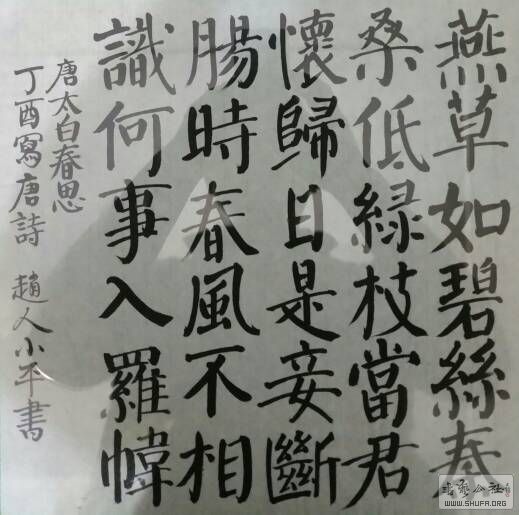 燕草如碧絲秦
桑低緑枝當君
懷歸日是妾斷
腸時春風不相
識何事入羅幃
唐太白春思
丁酉寫唐詩 趙人小平書
书艺公社
WWW.SHUFA.ORG